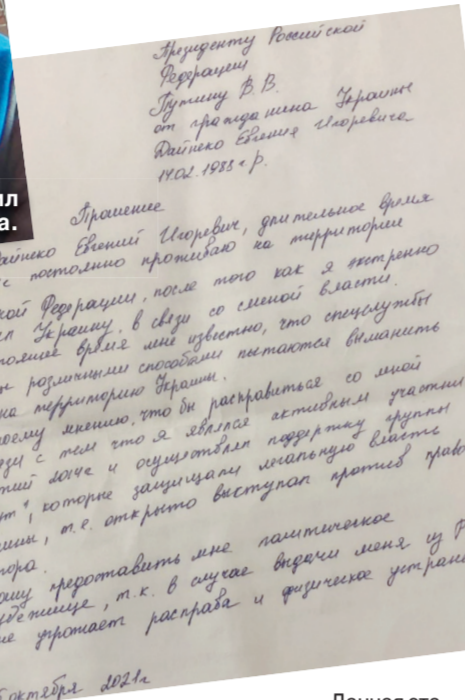 Президенту Российской
Федерации
Путину В.В.
от гражданина Украины
Дайнеко Евгения Игоревича
14.02.1988 г.р.
ил
а.
Прошение
Дайнеко Евгений Игоревич, длительное время
с постоянно проживаю на территории
кой Федерации, после того как я экстренно
ул Украину, в связи со сменой власти.
тоящее время мне известно, что спецслужбы
ы различными способами пытаются выманить
на территорию Украины.
моему мнению, что бы расправиться со мной
язи с тем что я являлся активным участни
тий 2014г и осуществлял поддержку группы
ут", которые защищали легальную власть
ины, т.е. открыто выступал против право
тора.
ошу предоставить мне политическое
убежище, т.к. в случае выдачи меня из Р
не угрожает расправа и физическое устране
5 октября 2021г
Данная сто